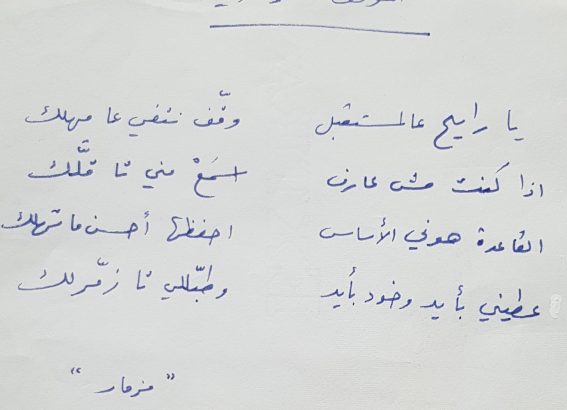 يا رايح عالمستقبل وقّف نتفي عا مهلك
اذا كنت مش عارف اسمَعْ مني تا قلَّك
القاعدة هوني الأساس احفظها أحسن ما تهلك
عطيني بأيد وخود بأيد وطبّللي تا زمّرلك
"مزمار"